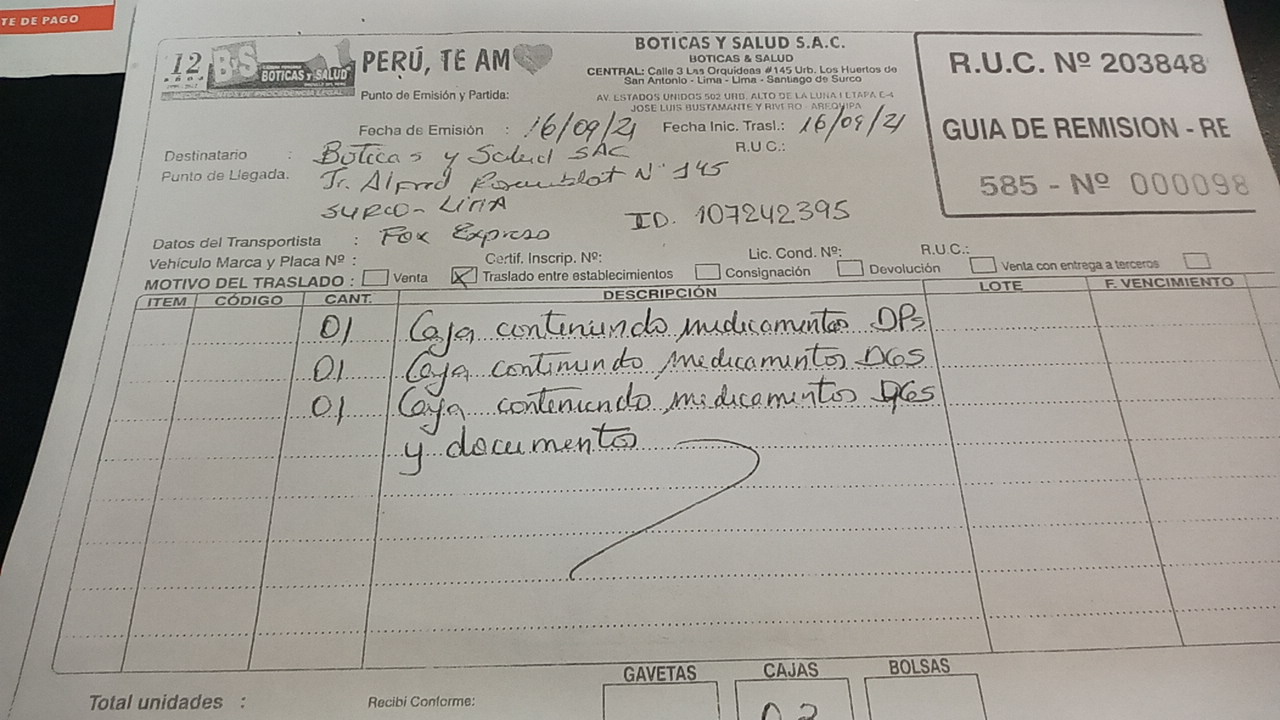 TE DE PAGO
12 AÑOS B&S BOTICAS Y SALUD
PERÚ, TE AM
BOTICAS Y SALUD S.A.C.
BOTICAS & SALUD
CENTRAL: Calle 3 Las Orquideas #145 Urb. Los Huertos de
San Antonio - Lima - Lima - Santiago de Surco
AV. ESTADOS UNIDOS 502 URB. ALTO DE LA LUNA I ETAPA E-4
JOSE LUIS BUSTAMANTE Y RIVERO - AREQUIPA
R.U.C. Nº 203848
GUIA DE REMISION - RE
585 - Nº 000098
Punto de Emisión y Partida:
Fecha de Emisión : 16/09/21 Fecha Inic. Trasl.: 16/09/21
Destinatario : Boticas y Salud SAC R.U.C.:
Punto de Llegada: Jr. Alfred Rosenblat N° 145
SURCO - LIMA ID. 107242395
Datos del Transportista : Fox Expreso
Vehículo Marca y Placa Nº : Certif. Inscrip. Nº: Lic. Cond. Nº: R.U.C.:
MOTIVO DEL TRASLADO : Venta X Traslado entre establecimientos Consignación Devolución Venta con entrega a terceros
ITEM CÓDIGO CANT. DESCRIPCIÓN LOTE F. VENCIMIENTO
01 Caja conteniendo medicamentos DPs
01 Caja conteniendo medicamentos DGS
01 Caja conteniendo medicamentos DGS
y documentos
GAVETAS CAJAS BOLSAS
Total unidades : Recibí Conforme: 03